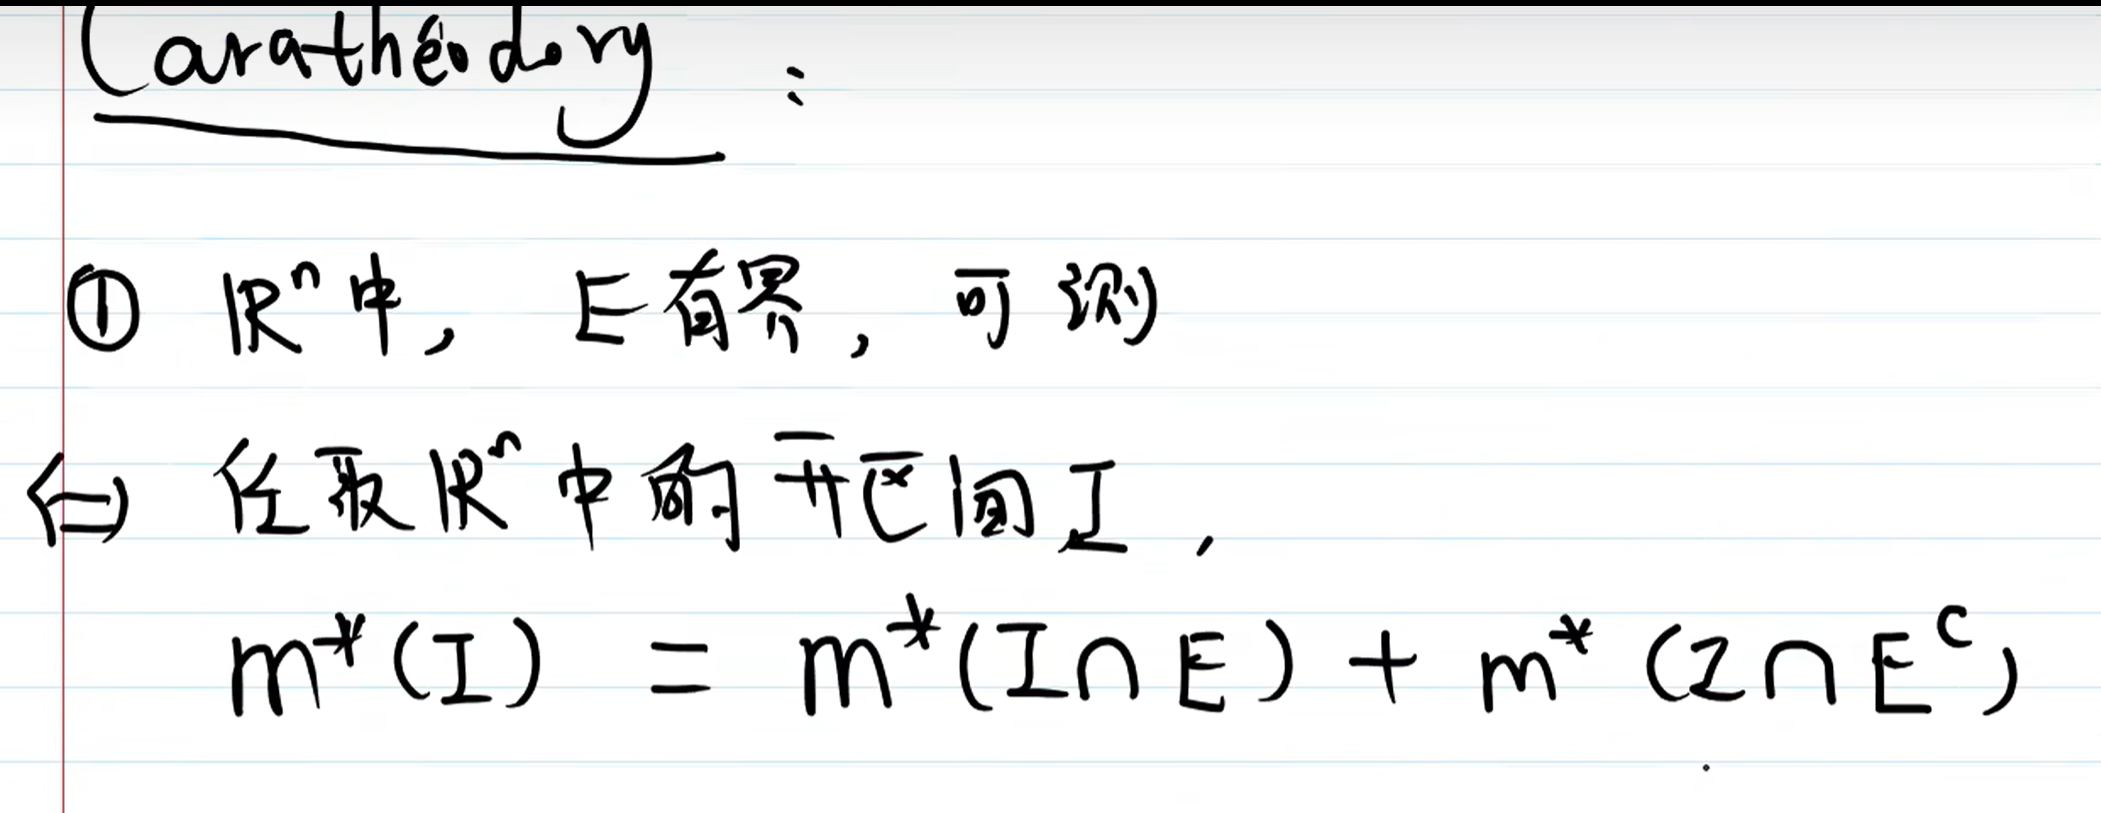 Carathéodory :
① ℝⁿ中, E有界, 可测
⇔ 任取ℝⁿ中的开区间I,
m*(I) = m*(I∩E) + m*(I∩Eᶜ)